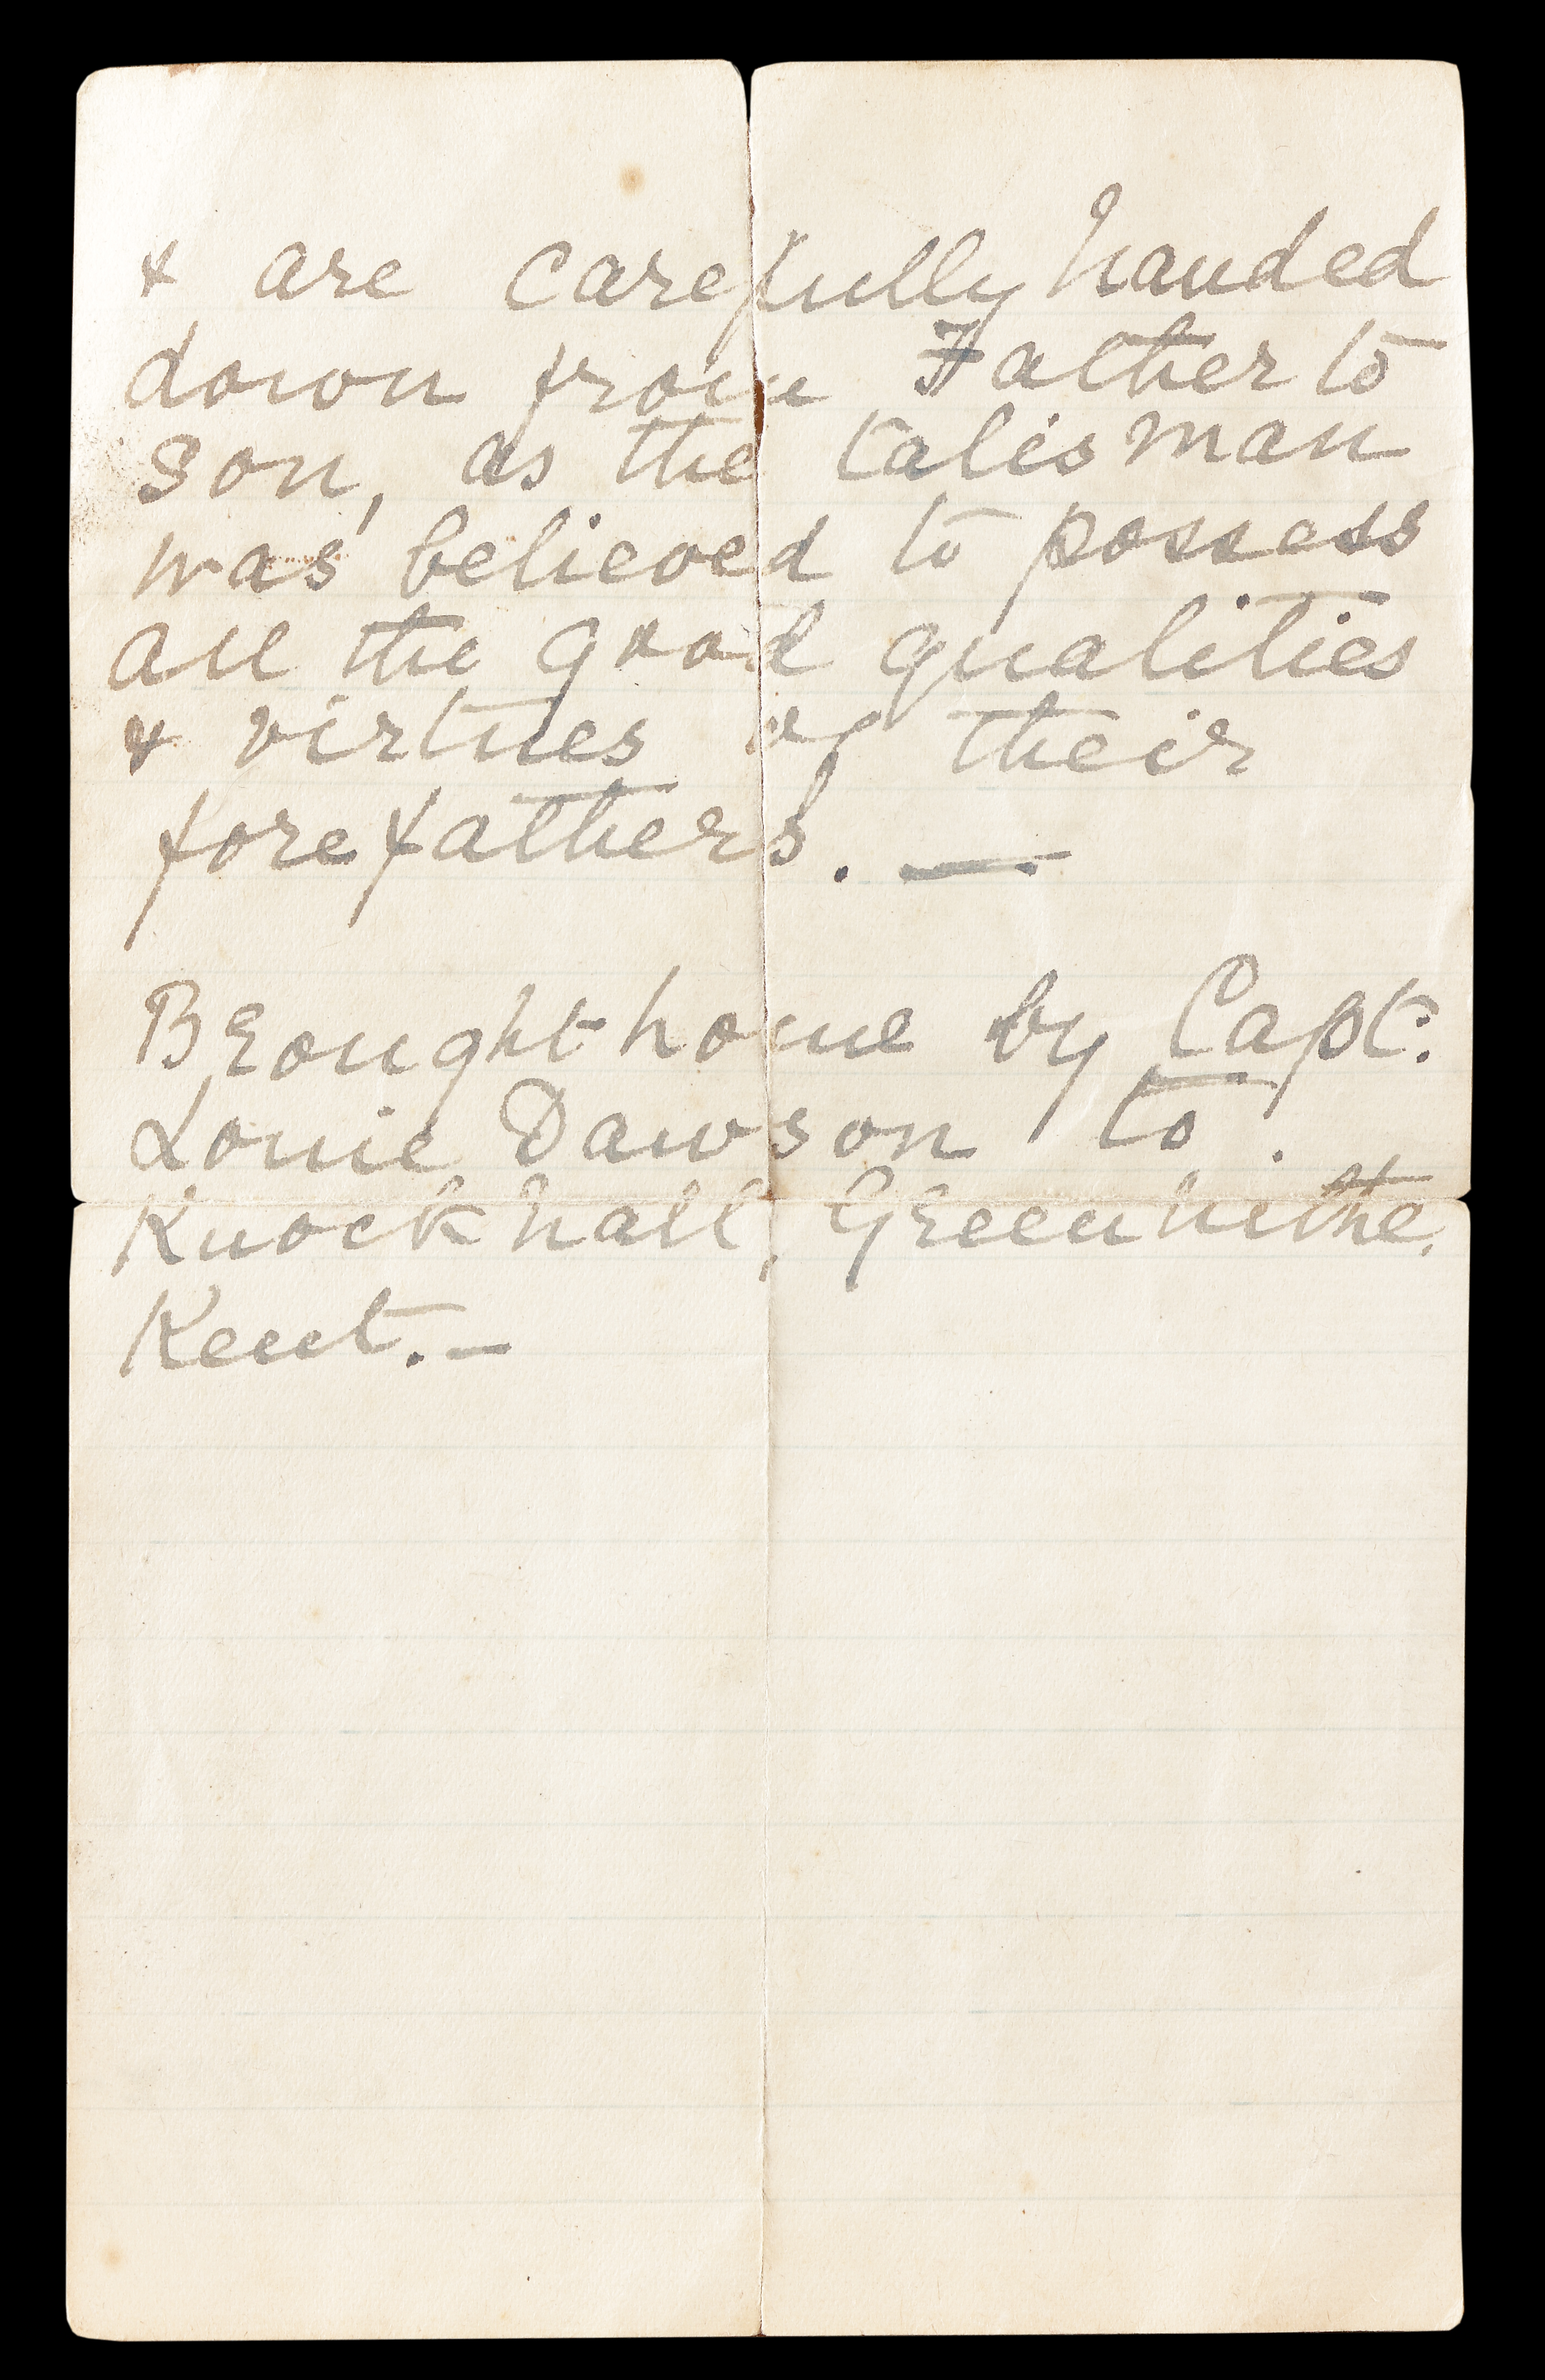 & are carefully handed
down from Father to
son, as the talisman
was believed to possess
all the good qualities
& virtues of their
forefathers. —
Brought home by Capt.
Louie Dawson to.
Knockhall, Greenhithe.
Kent. –